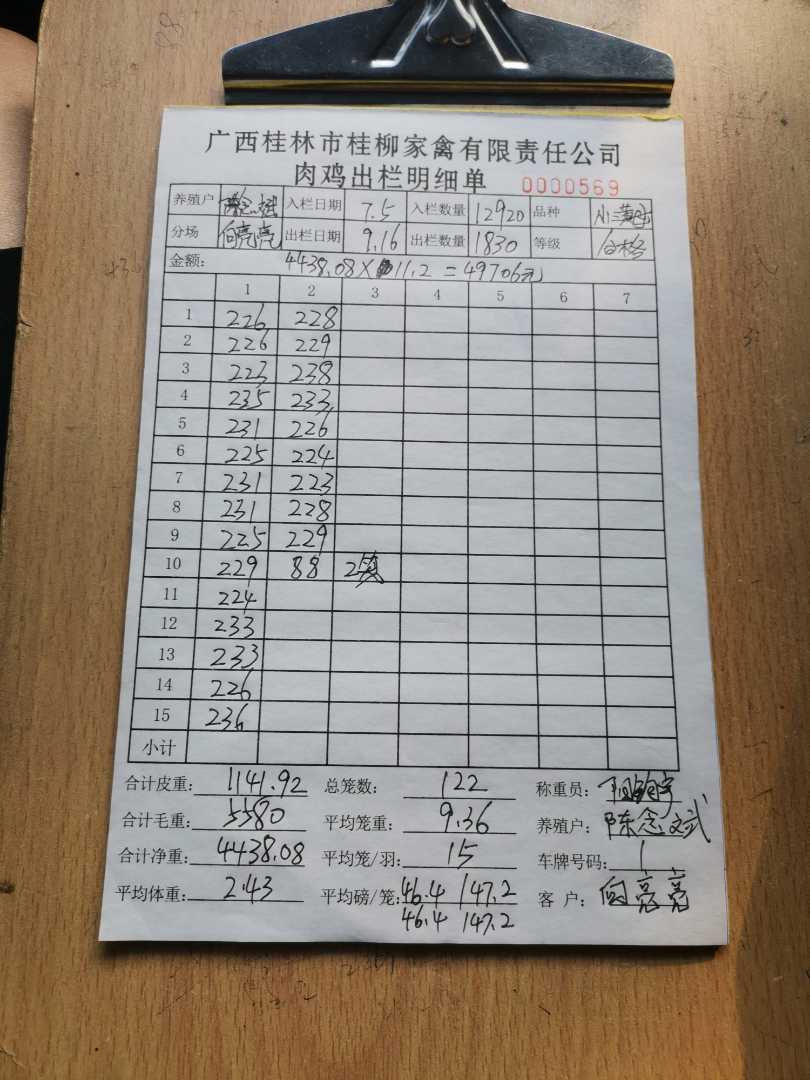 广西桂林市桂柳家禽有限责任公司
肉鸡出栏明细单 0000569
养殖户 入栏日期 7.5 入栏数量 12920 品种
分场 向亮亮 出栏日期 9.16 出栏数量 1830 等级 合格
金额: 4438.08×11.2=49706元
1 2 3 4 5 6 7
1 226 228
2 226 229
3 223 238
4 235 233
5 231 226
6 225 224
7 231 223
8 231 228
9 225 229
10 229 88 2
11 224
12 233
13 233
14 226
15 236
小计
合计皮重: 1141.92 总笼数: 122 称重员:
合计毛重: 5580 平均笼重: 9.36 养殖户: 陈念斌
合计净重: 4438.08 平均笼/羽: 15 车牌号码: 1
平均体重: 2.43 平均磅/笼: 46.4 147.2 客户: 向亮亮
46.4 147.2